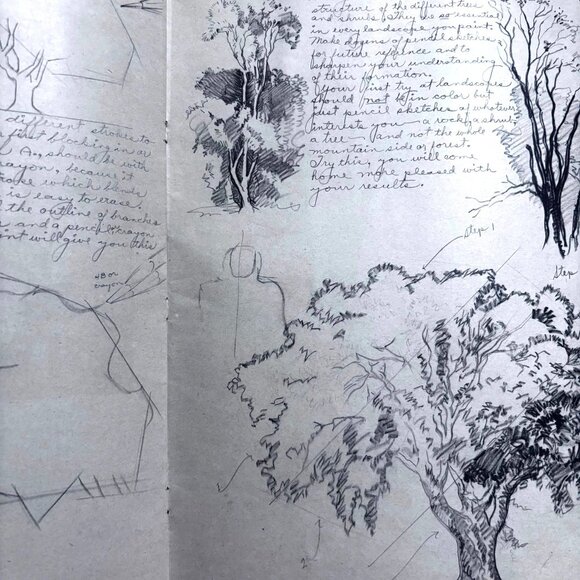 different strokes to
first blocking in as
of A, should be with
crayon, because it
which blends
is easy to erase,
the outline of branches
and a pencil crayon
will give you this
4B or
crayon
structure of the different trees
and shrubs. They are so essential
in every landscape you paint.
Make dozens of pencil sketches
for future reference and to
sharpen your understanding
of their formation.
If your first try at landscapes
should not be in color but
just pencil sketches of whatever
interests you — a rock, a shrub,
a tree — and not the whole
mountain side or forest.
Try this, you will come
home more pleased with
your results.
Step 1
Step
2